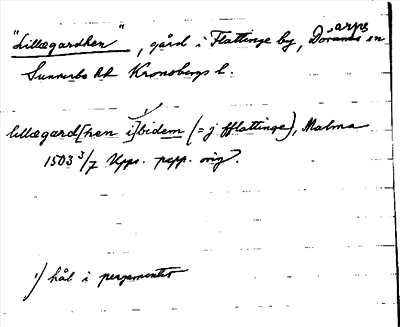 "Lillægardhen", gård i Flattinge by, Dörarps sn
Sunnerbo hd Kronobergs l.
lillægard[hen i]bidem (= j fflattinge), Malma
1503 3/7 Upps. papp. orig.
1) hål i pergamentet